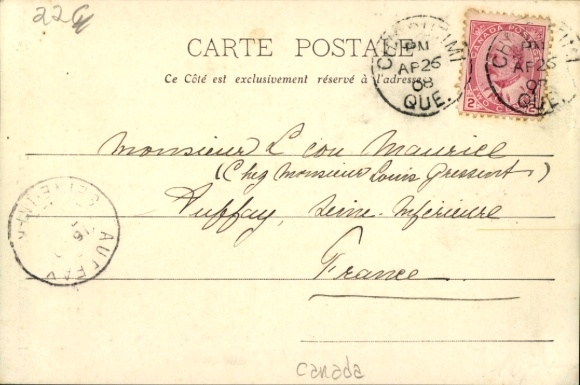 22
CARTE POSTALE
Ce Côté est exclusivement réservé à l'adresse
CHICOUTIMI
PM
AP 26
08
QUE.
CANADA POSTAGE
2
CHICOUTIMI
PM
AP 26
QUE.
Monsieur Léon Maurice
(Chez Monsieur Louis Gressent)
Auffay, Seine-Inférieure
France
AUFFAY
canada